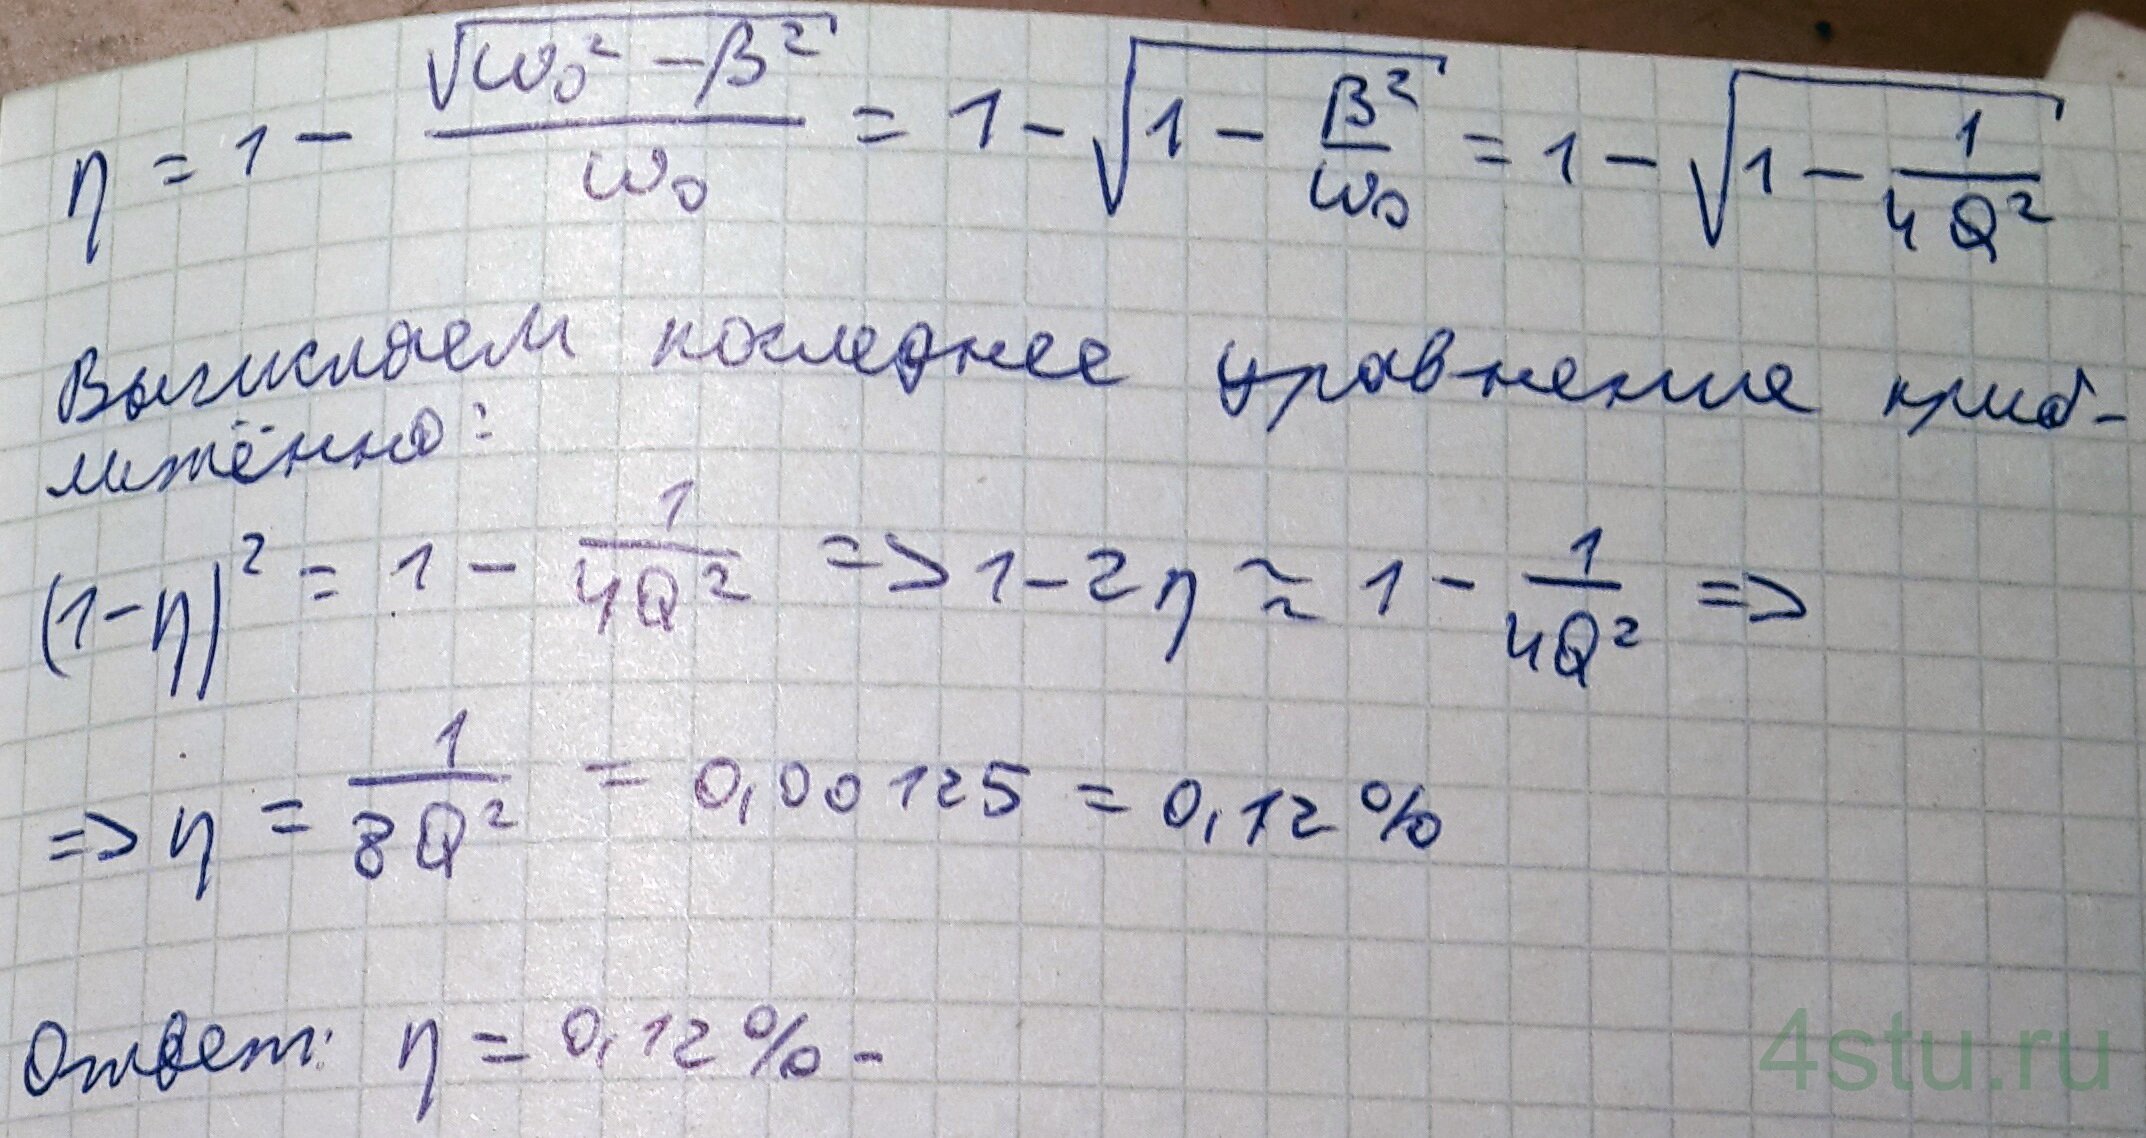 η = 1 - √(ω₀² - β²) / ω₀ = 1 - √(1 - β²/ω₀) = 1 - √(1 - 1/(4Q²))
Вычисляем последнее уравнение приб-
лижённо:
(1-η)² = 1 - 1/(4Q²) => 1 - 2η ≈ 1 - 1/(4Q²) =>
=> η = 1/(8Q²) = 0,00125 = 0,12%
Ответ: η = 0,12% -
4stu.ru